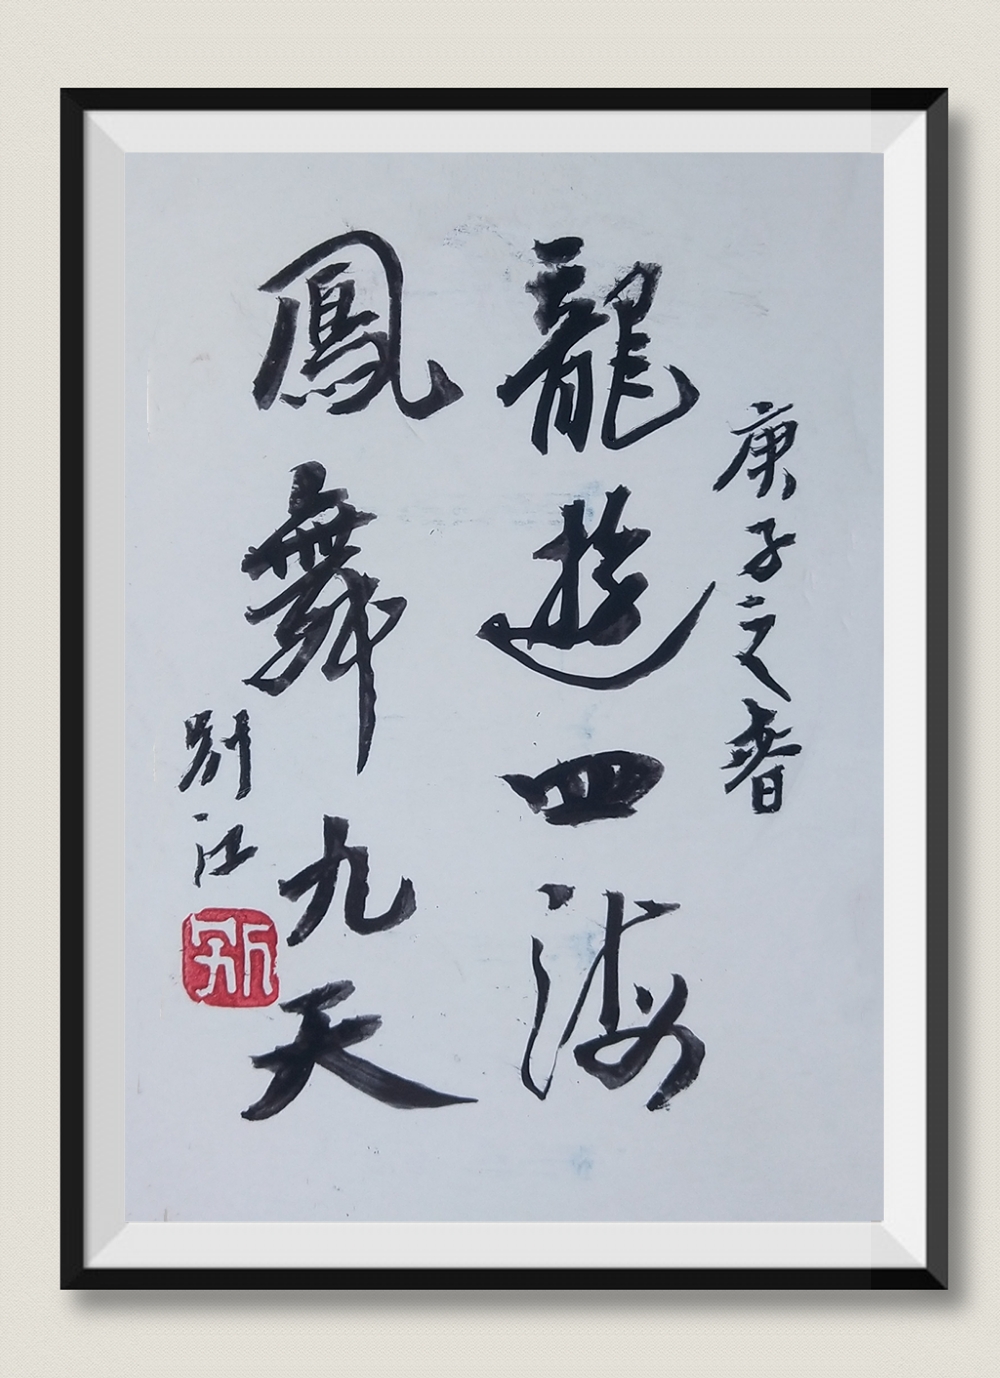 庚子之春
龍遊四海
鳳舞九天
別江